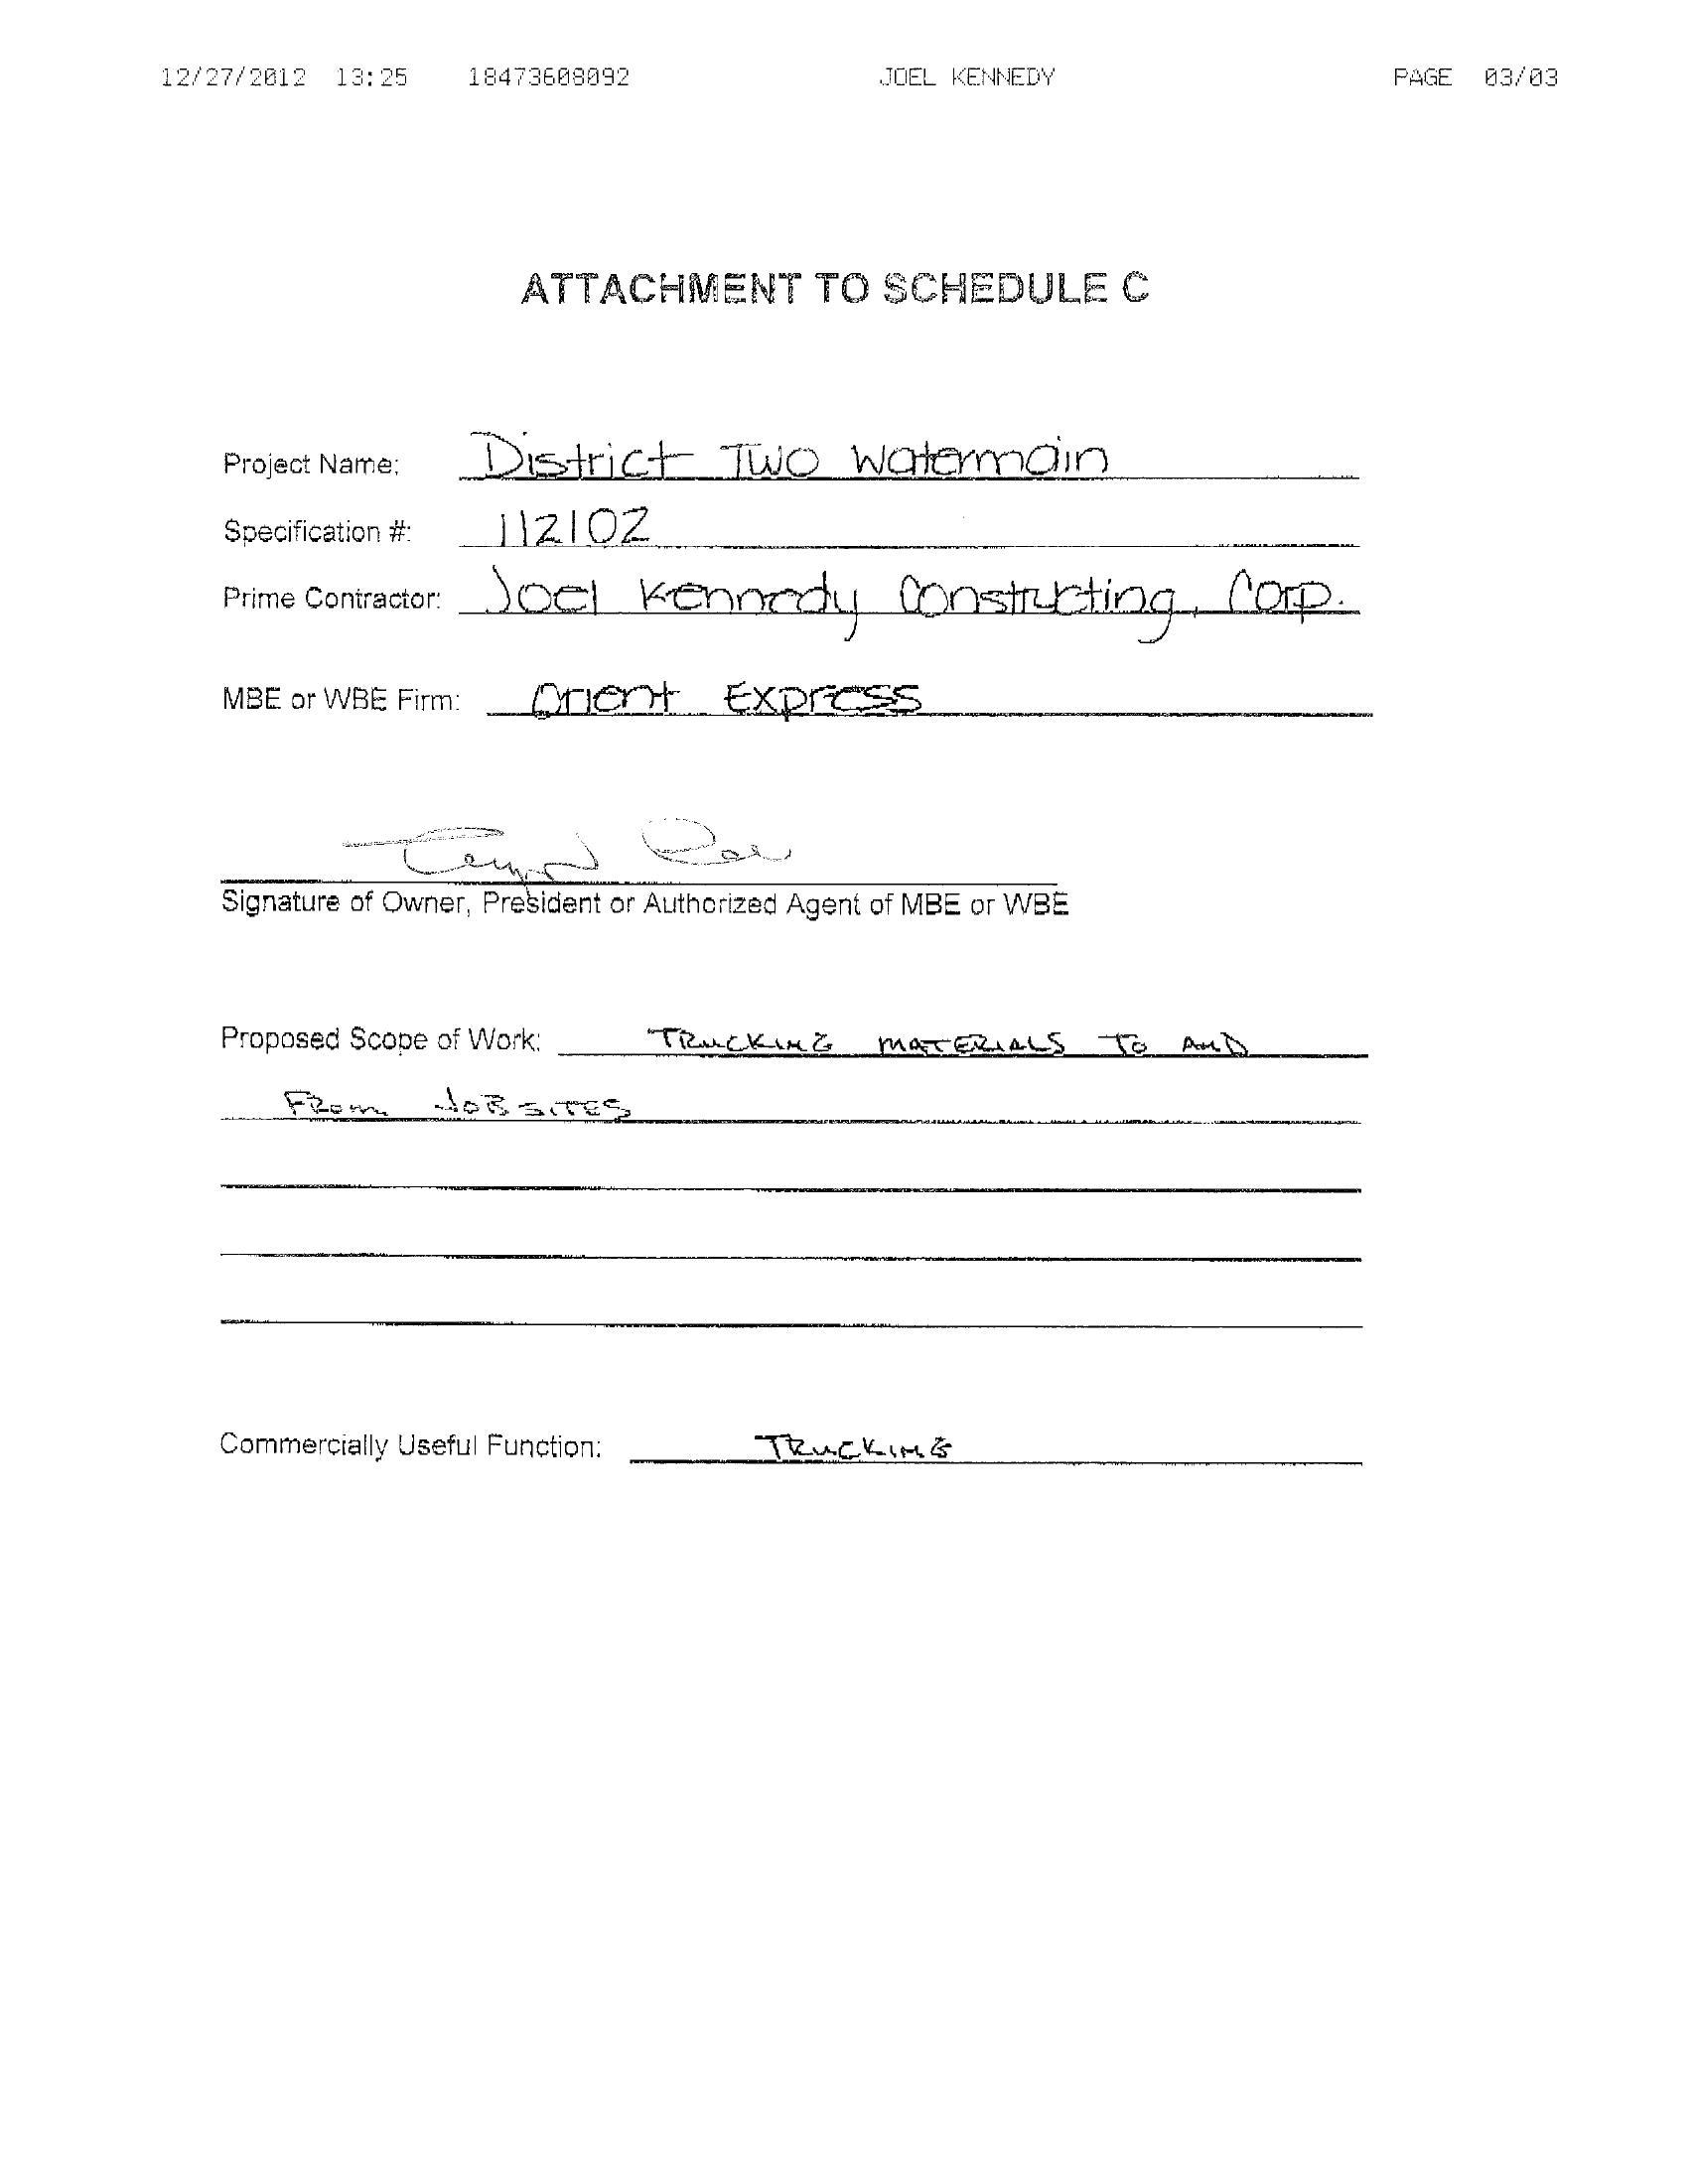 12/27/2012 13:25 18473608092 JOEL KENNEDY PAGE 03/03
ATTACHMENT TO SCHEDULE C
Project Name: District Two Watermain
Specification #: 112102
Prime Contractor: Joel Kennedy Constructing, Corp.
MBE or WBE Firm: Orient Express
Signature of Owner, President or Authorized Agent of MBE or WBE
Proposed Scope of Work: TRUCKING MATERIALS TO AND
FROM JOBSITES
Commercially Useful Function: TRUCKING